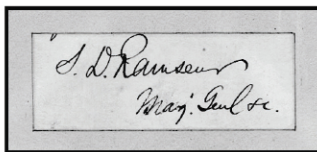 "S. D. Ramseur
Maj. Genl &c.